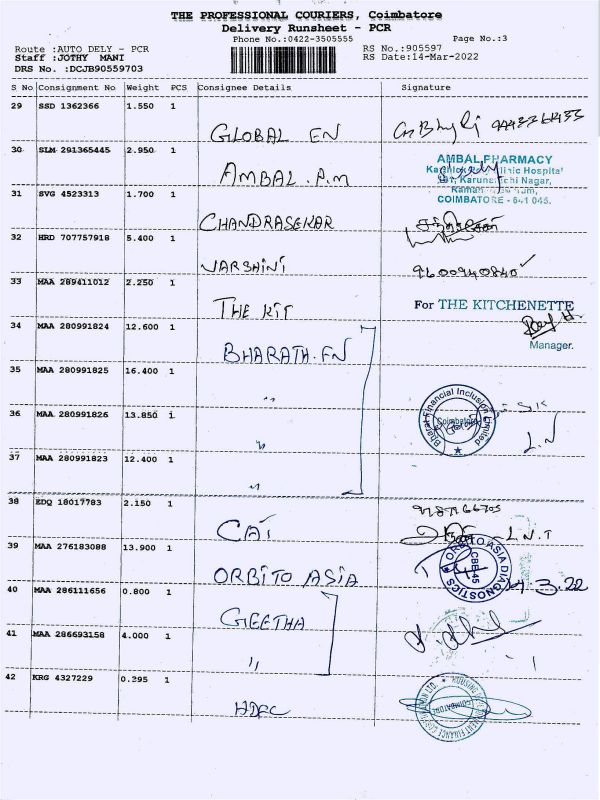 THE PROFESSIONAL COURIERS, Coimbatore
Delivery Runsheet - PCR
Phone No.:0422-3505555 Page No.:3
Route :AUTO DELY - PCR RS No.:905597
Staff :JOTHY MANI RS Date:14-Mar-2022
DRS No. :DCJB90559703
S No Consignment No Weight PCS Consignee Details Signature
29 SSD 1362366 1.550 1
GLOBAL EN
30 SLM 291365445 2.950 1
AMBAL.P.M
AMBAL PHARMACY
Hospital
Nagar,
COIMBATORE - 641 045.
31 SVG 4523313 1.700 1
CHANDRASEKAR
32 HRD 707757918 5.400 1
VARSHINI
9600940840
33 MAA 289411012 2.250 1
THE KIT
For THE KITCHENETTE
Manager.
34 MAA 280991824 12.600 1
BHARATA.FN
35 MAA 280991825 16.400 1
"
36 MAA 280991826 13.850 1
"
Bharat Financial Inclusion Limited
Coimbatore
L.N
37 MAA 280991823 12.400 1
"
38 EDQ 18017783 2.150 1
CAI
L.N.T
39 MAA 276183088 13.900 1
ORBITO ASIA
ORBITO ASIA DIAGNOSTICS
CBE-45
14.3.22
40 MAA 286111656 0.800 1
GEETHA
41 MAA 286693158 4.000 1
"
42 KRG 4327229 0.395 1
HDFC
COIMBATORE